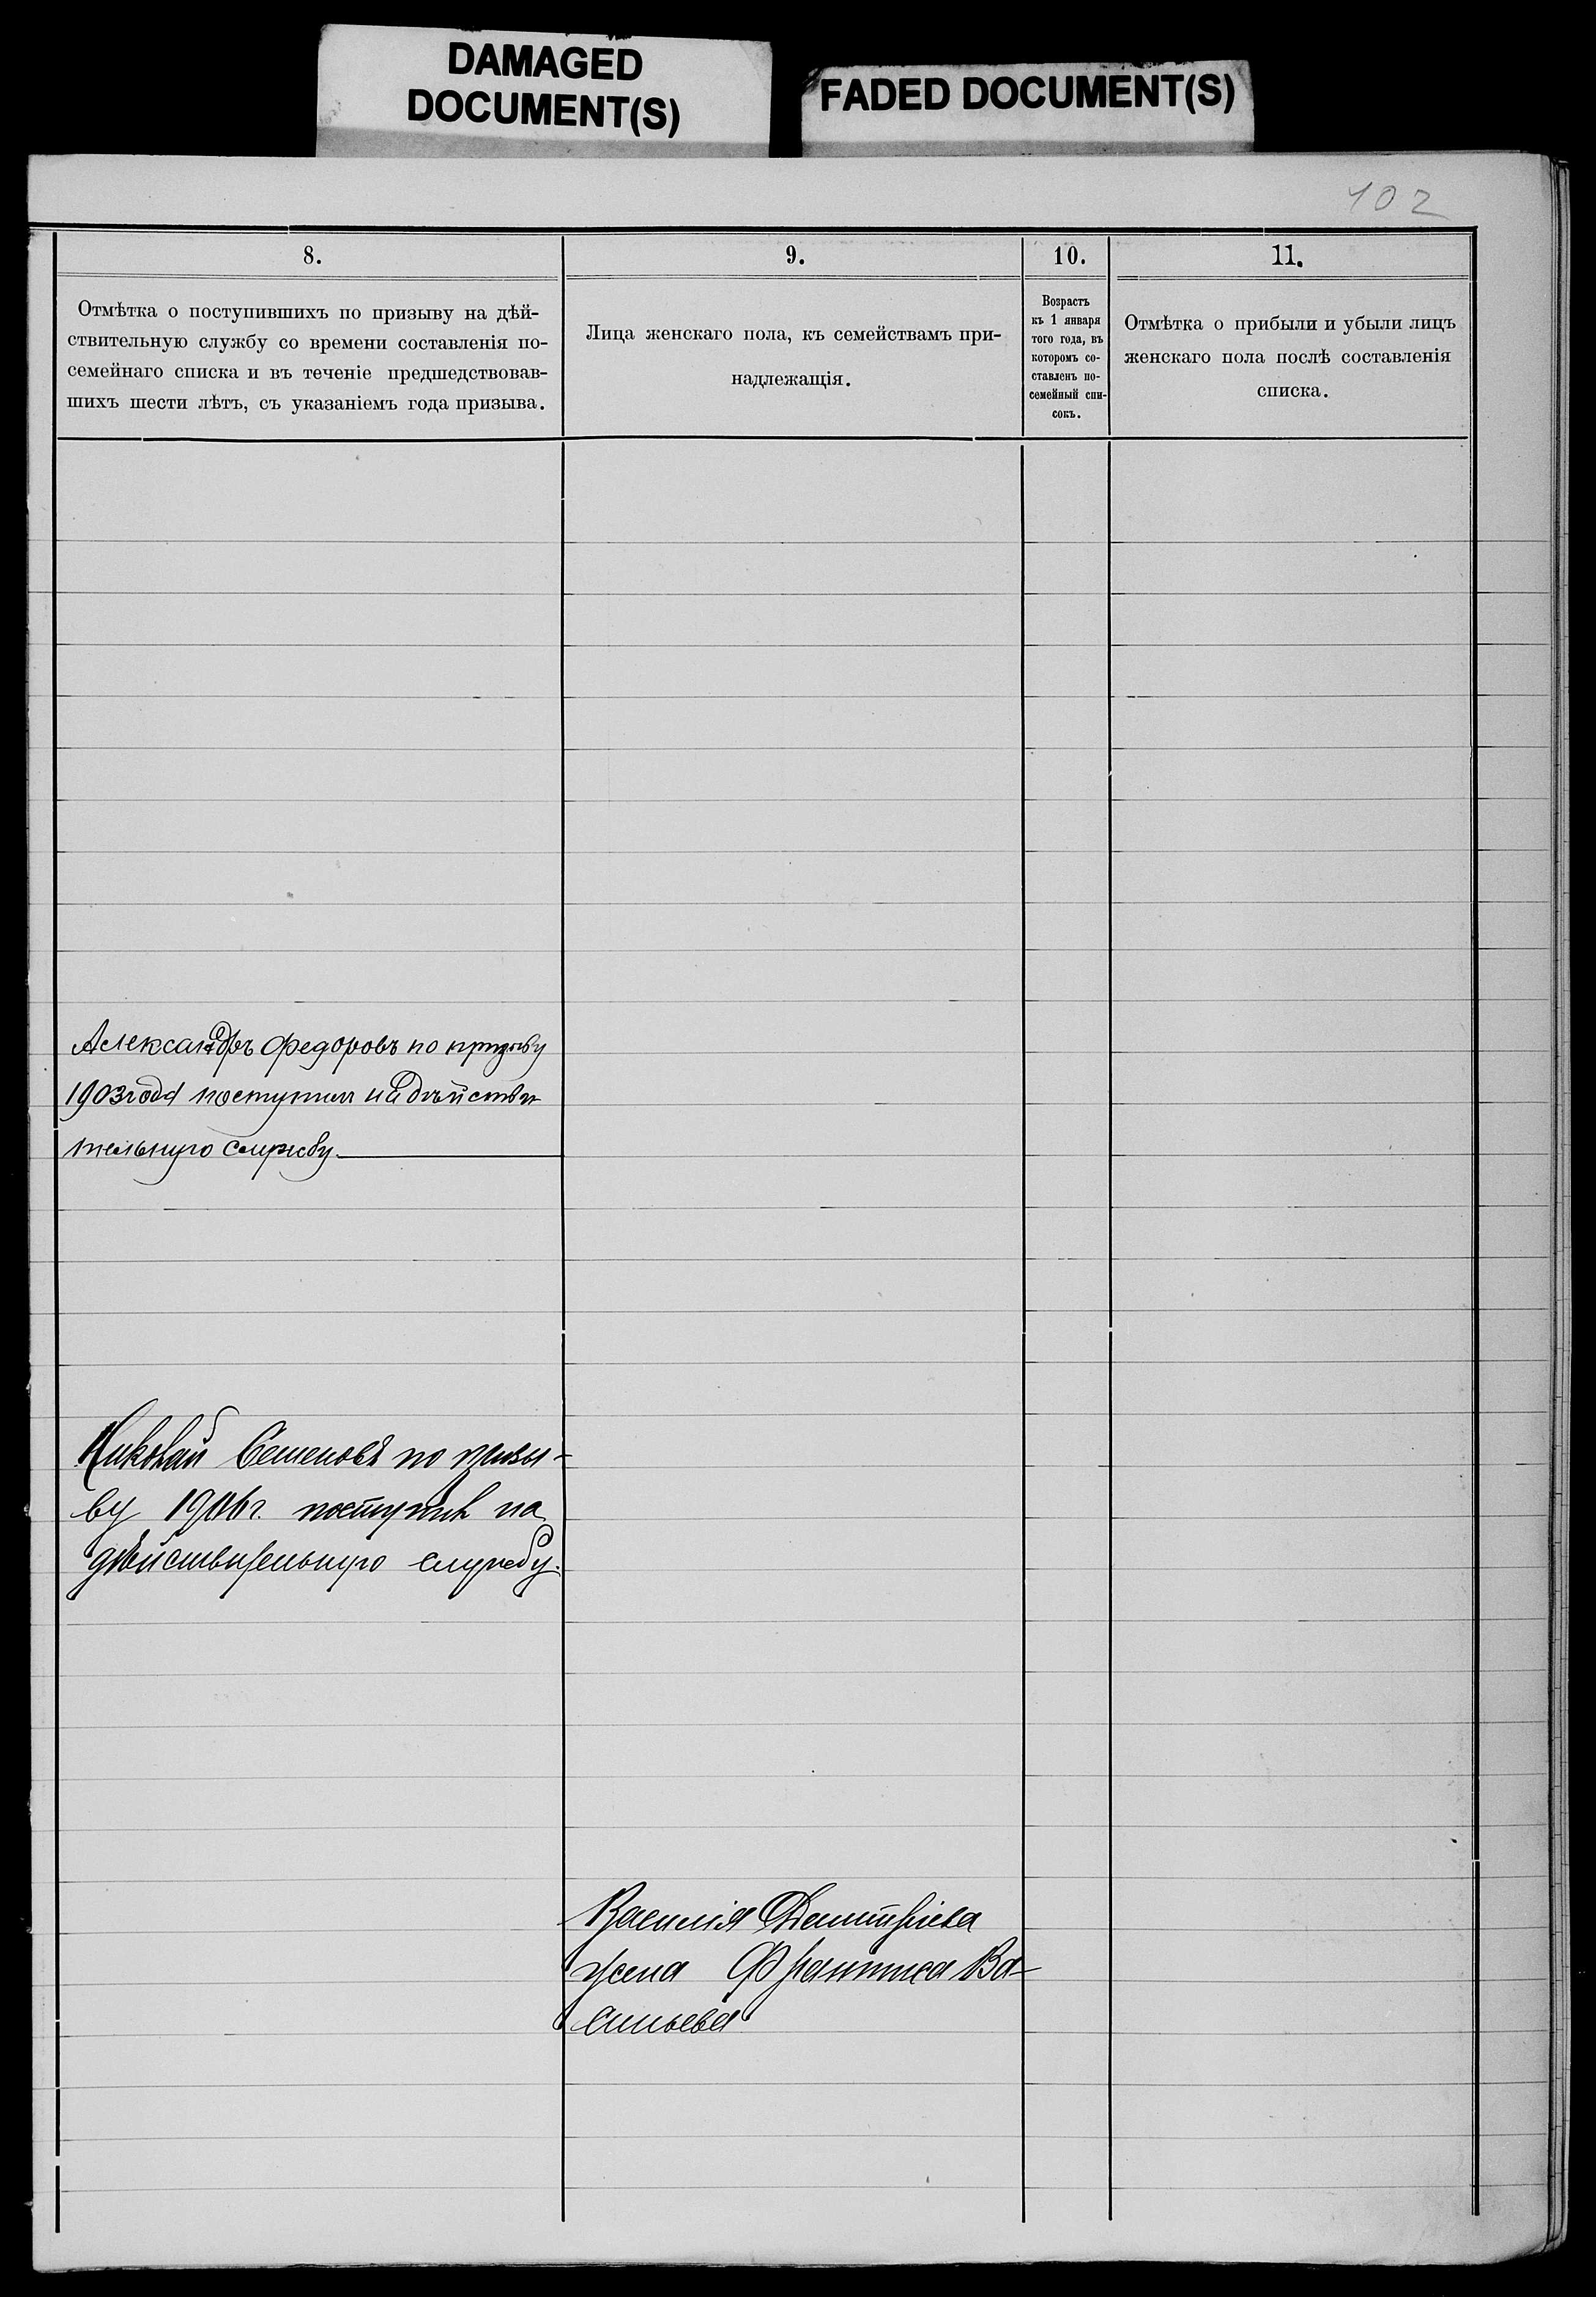 DAMAGED
DOCUMENT(S)
FADED DOCUMENT(S)
102
8.
Отмѣтка о поступившихъ по призыву на дѣй-
ствительную службу со времени составленія по-
семейнаго списка и въ теченіе предшедствовав-
шихъ шести лѣтъ, съ указаніемъ года призыва.
9.
Лица женскаго пола, къ семействамъ при-
надлежащія.
10.
Возрастъ
къ 1 января
того года, въ
которомъ со-
ставленъ по-
семейный спи-
сокъ.
11.
Отмѣтка о прибыли и убыли лицъ
женскаго пола послѣ составленія
списка.
Александръ Федоровъ по призыву
1903 года поступил на дѣйстви
тельную службу.
Николай Семеновъ по призы-
ву 1906 г. поступилъ на
дѣйствительную службу.
Василія Дмитріева
жена Ва-
сильева